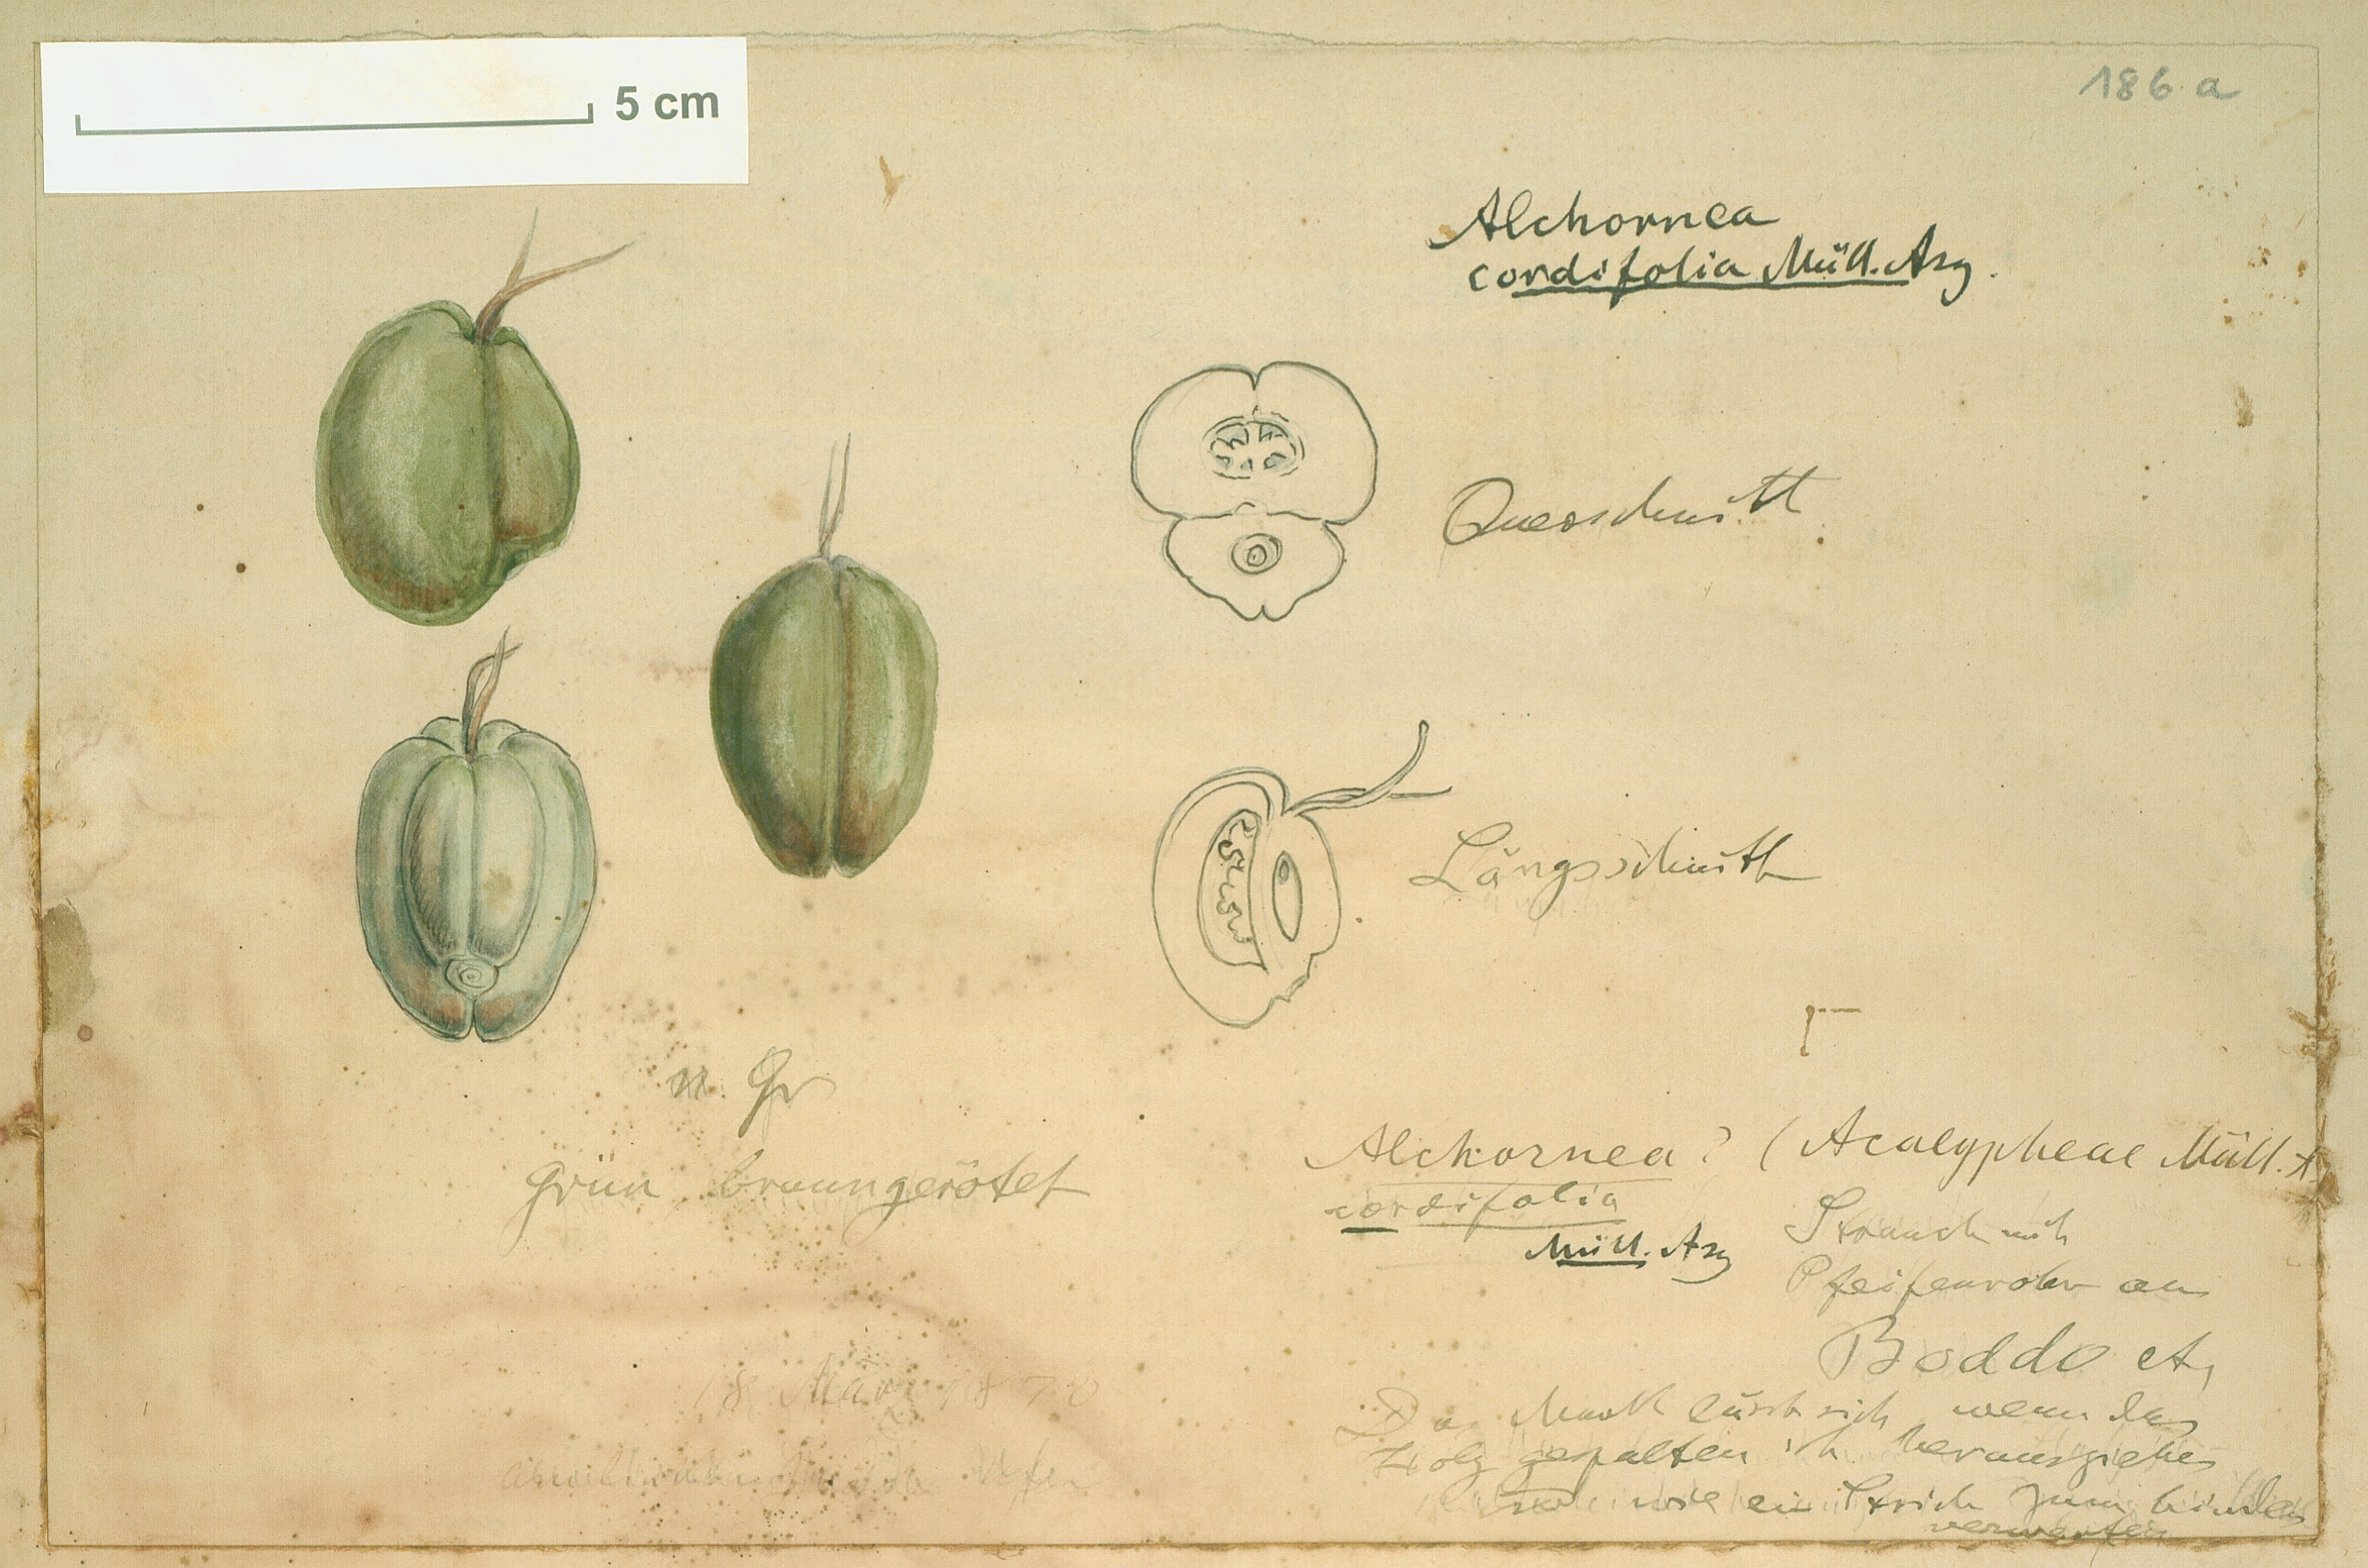 5 cm
186 a
Alchornea
cordifolia Müll. Arg.
Querschnitt
Längsschnitt
n. Gr
grün braungerötet
Alchornea? (Acalypheae Müll. A
cordifolia
Müll. Arg
Strauch mit
Pfeifenrohr am
Boddo
18 März 1870
Das Mark lässt sich, wenn das
Holz gespalten ist herausziehen
und wie ein Strick zum binden
verwerten